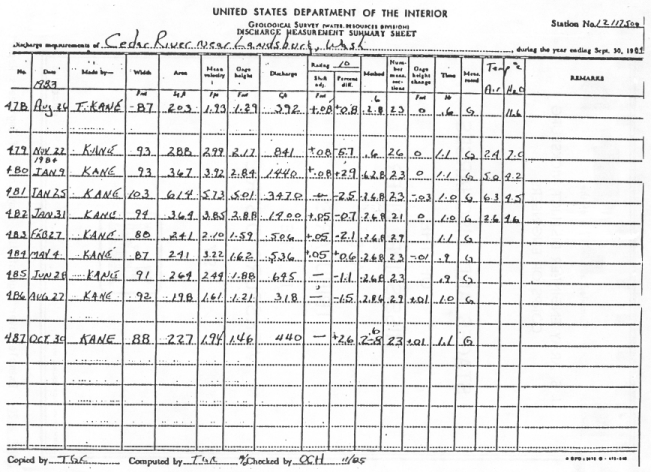 UNITED STATES DEPARTMENT OF THE INTERIOR
GEOLOGICAL SURVEY (WATER RESOURCES DIVISION)
Station No. 12117500
DISCHARGE MEASUREMENT SUMMARY SHEET
Discharge measurements of Cedar River near Landsburg, Wash , during the year ending Sept. 30, 198
Rating 10 Temp °C
No. Date Made by— Width Area Mean velocity Gage height Discharge Shift adj. Percent diff. Method Number meas. sections Gage height change Time Meas. rated Air H2O REMARKS
1983 Feet Sq ft Fps Feet Cfs Feet Feet Hr
478 Aug 26 T. KANE 87 203 1.93 1.29 392 +.08 +0.8 .6 .2.8 23 0 .6 G 11.6
479 NOV 22 KANE 93 288 2.99 2.17 841 +.08 -5.7 .6 26 0 1.1 G 2.9 7.0
1984
480 JAN 9 KANE 93 367 3.92 2.84 1440 +.08 +2.9 .6.2.8 23 0 1.1 G 5.0 4.2
481 JAN 25 KANE 103 614 5.73 5.01 3470 -0- -2.5 .2.6.8 23 -.03 1.0 G 6.3 4.5
482 JAN 31 KANE 94 364 3.85 2.88 1400 +.05 -0.7 .2.6.8 21 0 1.0 G 2.6 4.6
483 FEB 27 KANE 88 241 2.10 1.59 506 +.05 -2.1 .2.6.8 29 1.1 G
484 MAY 4 KANE 87 241 2.22 1.62 536 +.05 +0.6 .2.6.8 23 -.01 .9 G
485 JUN 28 KANE 91 264 2.44 1.88 645 — -1.1 .2.6.8 23 .9 G
486 AUG 27 KANE 92 198 1.61 1.21 318 — -1.5 .2.8.6 29 +.01 1.0 G
487 OCT 30 KANE 88 227 1.94 1.46 440 — +2.6 .6 .2-.8 23 +.01 1.1 G
Copied by TGE Computed by TGR Checked by OCH 11/85